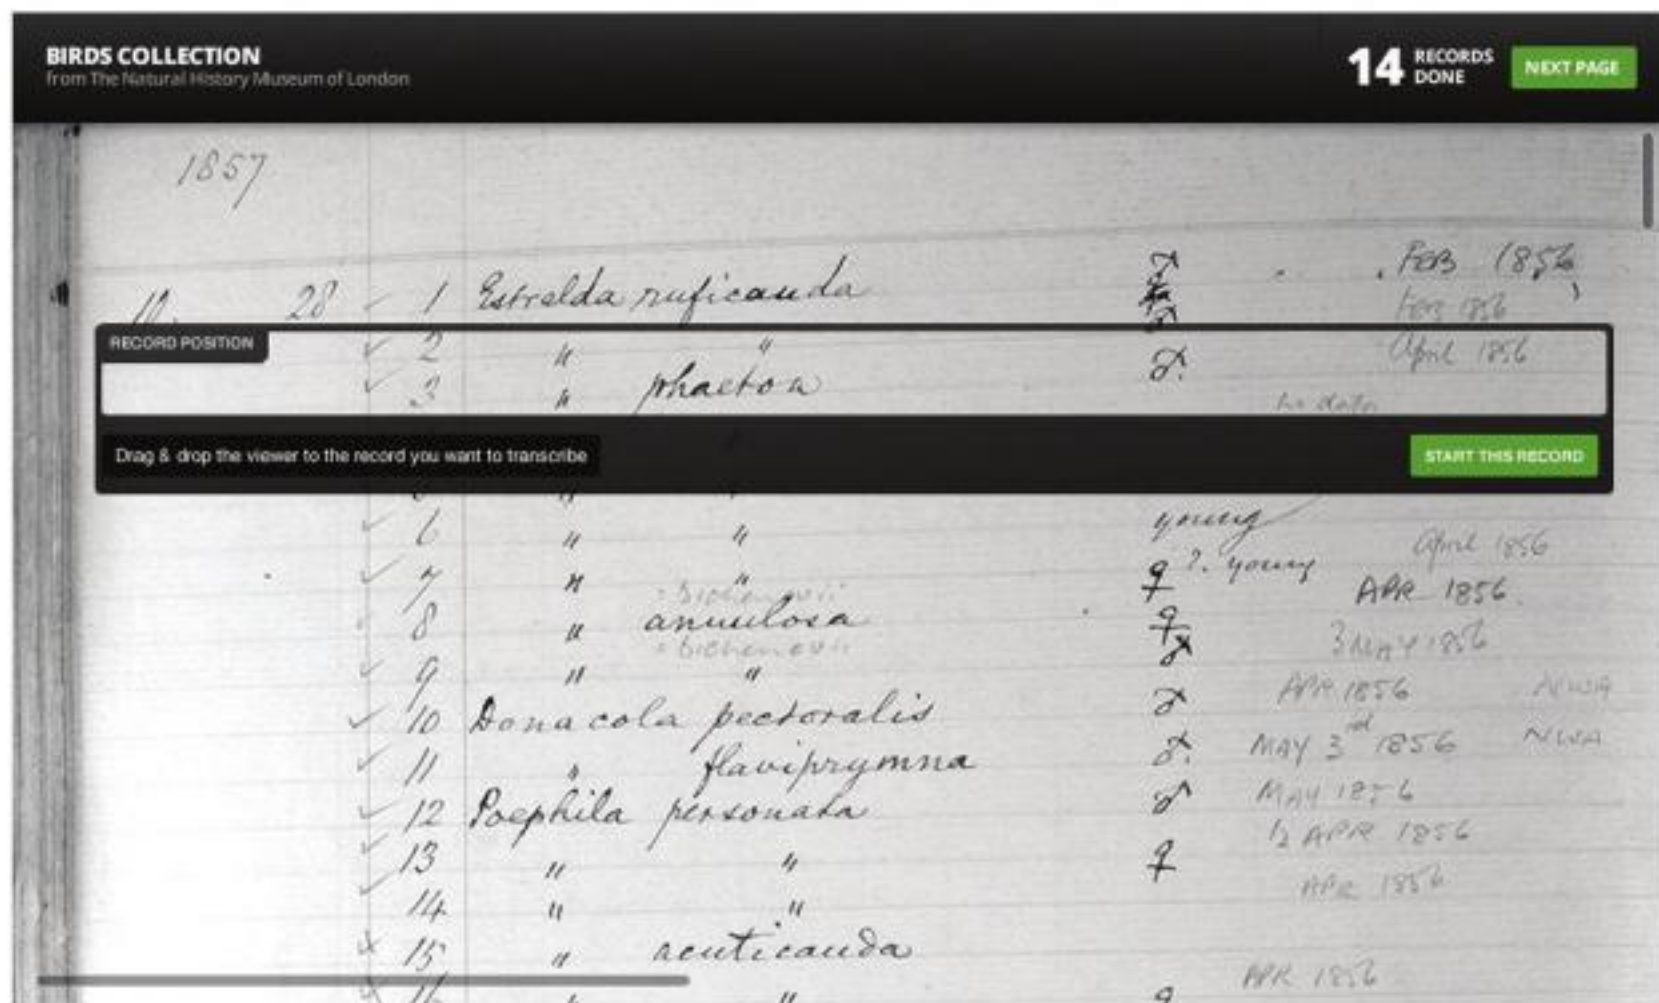 BIRDS COLLECTION
from The Natural History Museum of London
14 RECORDS DONE
NEXT PAGE
1857
28 1 Estrelda ruficauda ♂ FEB 1856
FEB 1856
RECORD POSITION
2 " " April 1856
3 " phaeton ♂. no date
Drag & drop the viewer to the record you want to transcribe
START THIS RECORD
6 " " young
April 1856
7 " " ♀ ?. young APR 1856.
= bichenovii
8 " annulosa ♀ 3 MAY 1856
= bichenovii
9 " " ♂ APR 1856 NWA
10 Donacola pectoralis ♂ MAY 3rd 1856 NWA
11 " flaviprymna ♂. MAY 1856
12 Poephila personata ♂
APR 1856
13 " " ♀ APR 1856
14 " "
15 " acuticauda
APR 1856
" ♀